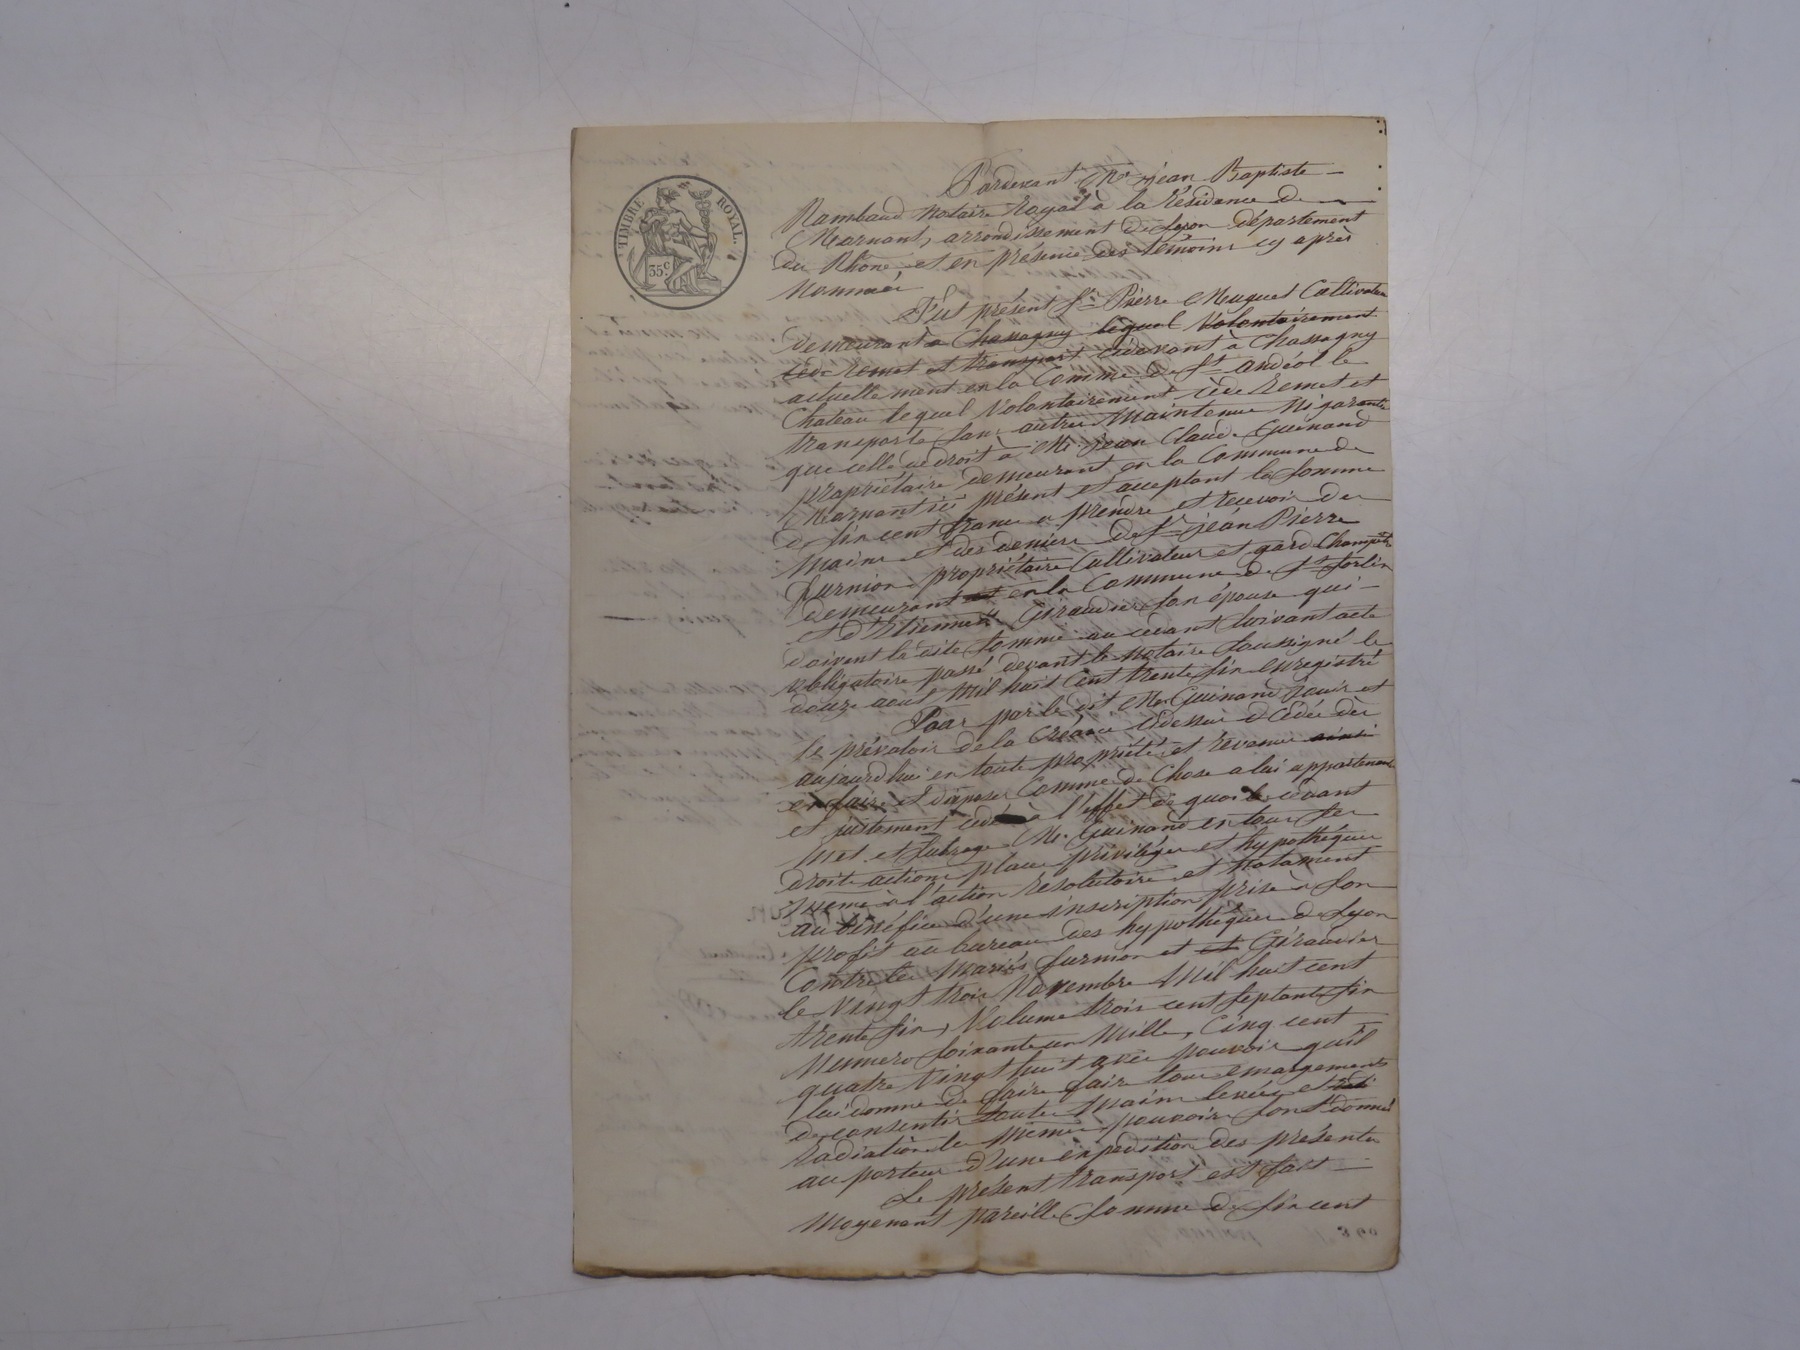 TIMBRE ROYAL.
35c
Pardevant Me jean Baptiste
Rambaud notaire Royal à la Résidence de
Mornant, arrondissement de Lyon département
du Rhône et en présence des témoins cy après
Nommés
Fut présent Sr Pierre Muguet Cultivateur
demeurant a Chassagny lequel Volontairement
cède Remet et transport cidevant à Chassagny
actuellement en la Comme de St andéol le
Chateau lequel Volontairement cède Remet et
transporte sans autre Maintenue Ni garantie
que celle de droit à Mr jean Claude Guinand
propriétaire demeurant en la Commune de
Mornant ici présent et acceptant la somme
de six cent francs a prendre et recevoir des
mains et des deniers de Sr jean Pierre
furnion propriétaire Cultivateur et gard Champetre
demeurant en la Commune de St Sorlin
et d'Etiennette Giraudier son épouse qui
doivent la dite somme au cedant suivant acte
obligatoire passé devant le notaire soussigné le
douze aout Mil huit cent trente six enregistré
Pour par le dit Mr Guinand jouir et
se prévaloir de la Créance cidessus cédée dès
aujourdhui en toute propriété et revenus ainsi
en faire et disposer Comme de Chose a lui appartenant
et justement cédée à l'effet de quoi le cédant
met et subroge Mr Guinand en tous ses
droits actions places privilèges et hypothèques
même à l'action résolutoire et notament
au bénéfice d'une inscription prise à son
profit au bureau des hypothèques de Lyon
Contre les mariés furnion et et Giraudier
le vingt trois Novembre Mil huit cent
trente six, Volume trois cent septante six
Numero soixante un Mille, Cinq cent
quatre Vingt huit avec pouvoir qu'il
lui donne de faire faire tous emargements
de consentir toutes mains levées et
Radiations les mêmes pouvoirs sont donnés
au porteur d'une expédition des présentes
Le présent transport est fait
Moyenant pareille somme de six cent